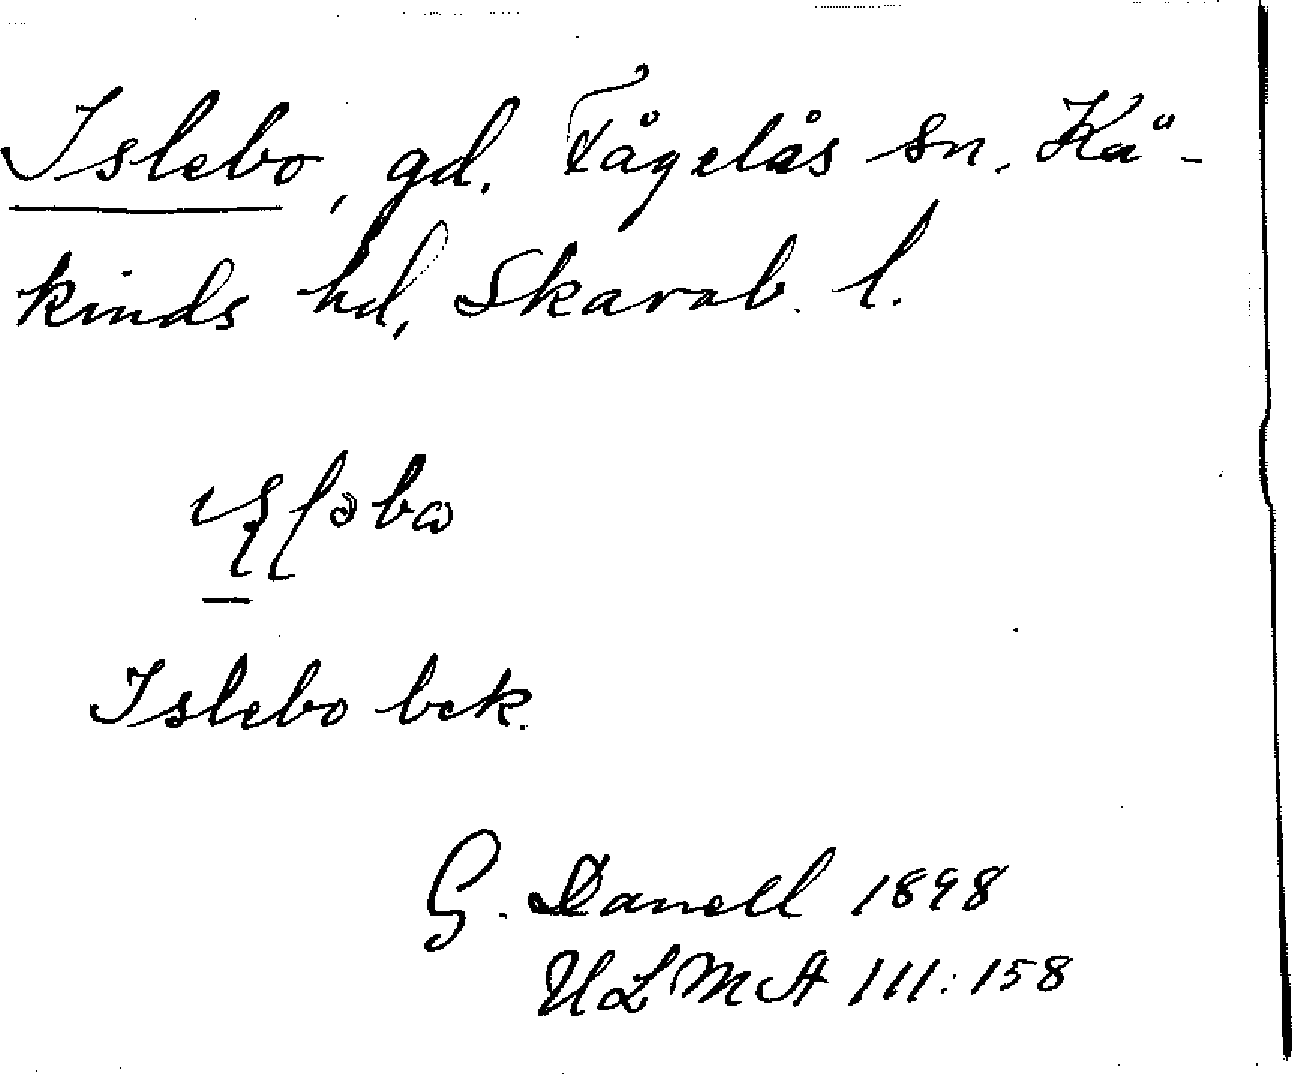 Islebo, gd. Fågelås sn. Kå-
kinds hd, Skarab. l.
Islebo bek.
G. Danell 1898
ULMA 111:158